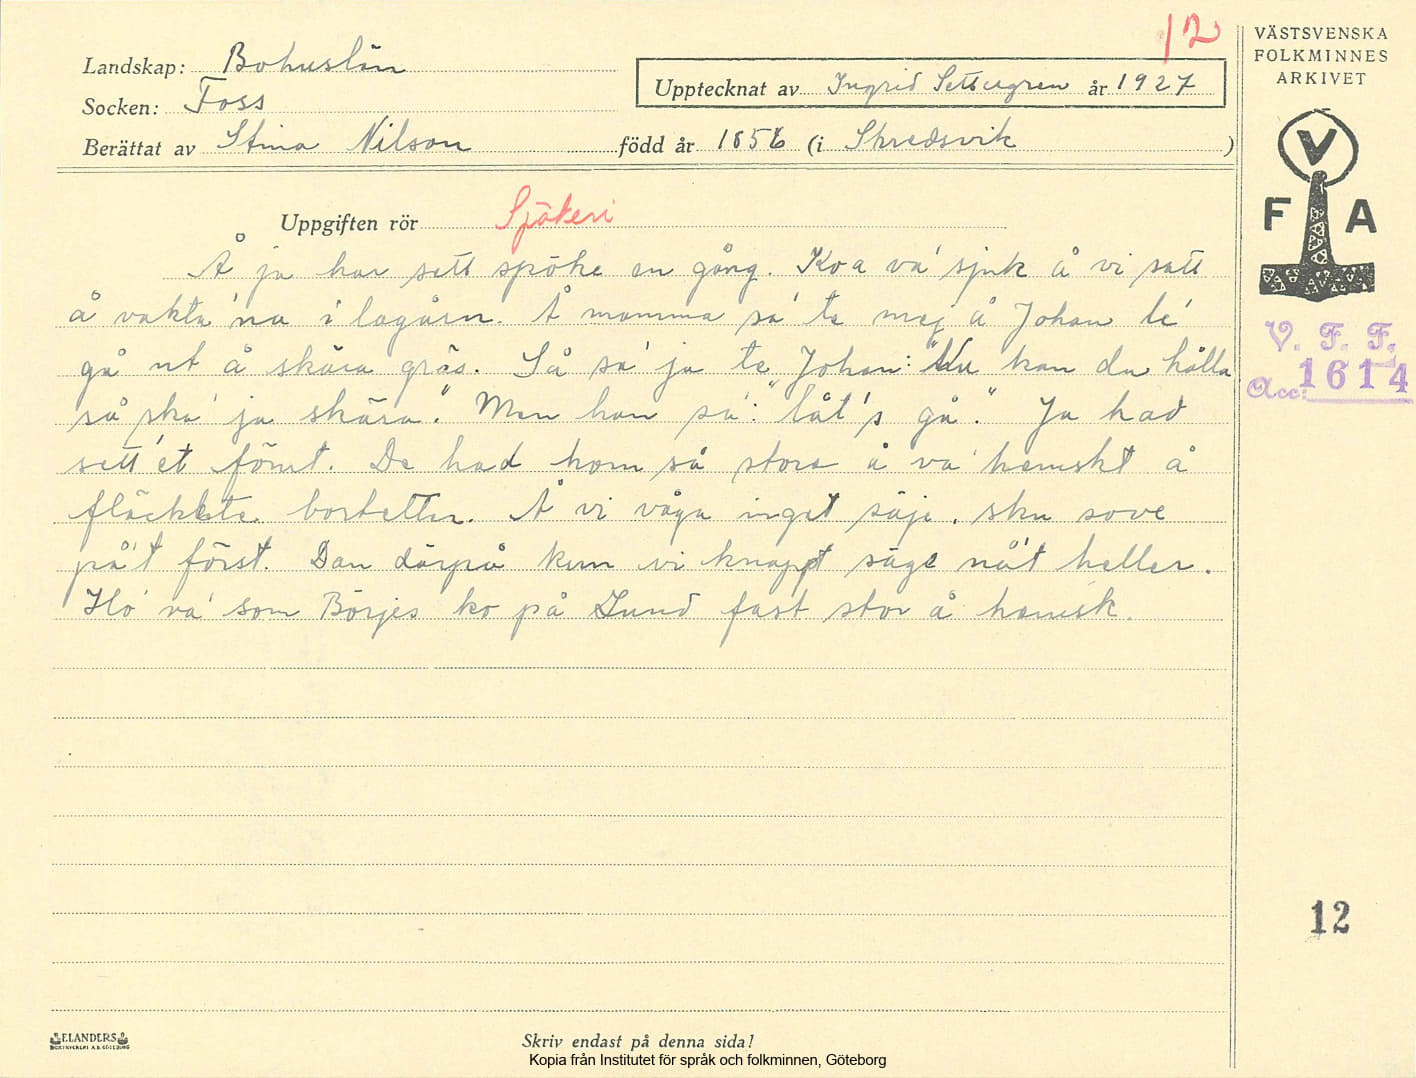 12
VÄSTSVENSKA
FOLKMINNES
ARKIVET
Landskap: Bohuslän
Socken: Foss
Upptecknat av Ingrid Settergren år 1927
Berättat av Stina Nilson född år 1856 (i Skredsvik )
V
F A
Uppgiften rör Spökeri
Å ja har sett spöke en gång. Koa va' sjuk å vi satt
å vakta 'na i lagårn. Å mamma sa' te mej å Johan te'
gå ut å skära gräs. Så sa' ja te Johan: "Nu kan du hålla
så ska' ja skära." Men han sa': "låt's gå." Ja had
sett et fömt. De had horn så stora å va' hemskt å
fläckete bortetter. Å vi våga inget säje, sku sove
på't först. Dan därpå kun vi knappt säge nå't heller.
Ho va' som Börjes ko på Lund fast stor å hemsk.
V. F. F.
Acc: 1614
12
ELANDERS
BOKTRYCKERI A.B. GÖTEBORG
Skriv endast på denna sida!
Kopia från Institutet för språk och folkminnen, Göteborg